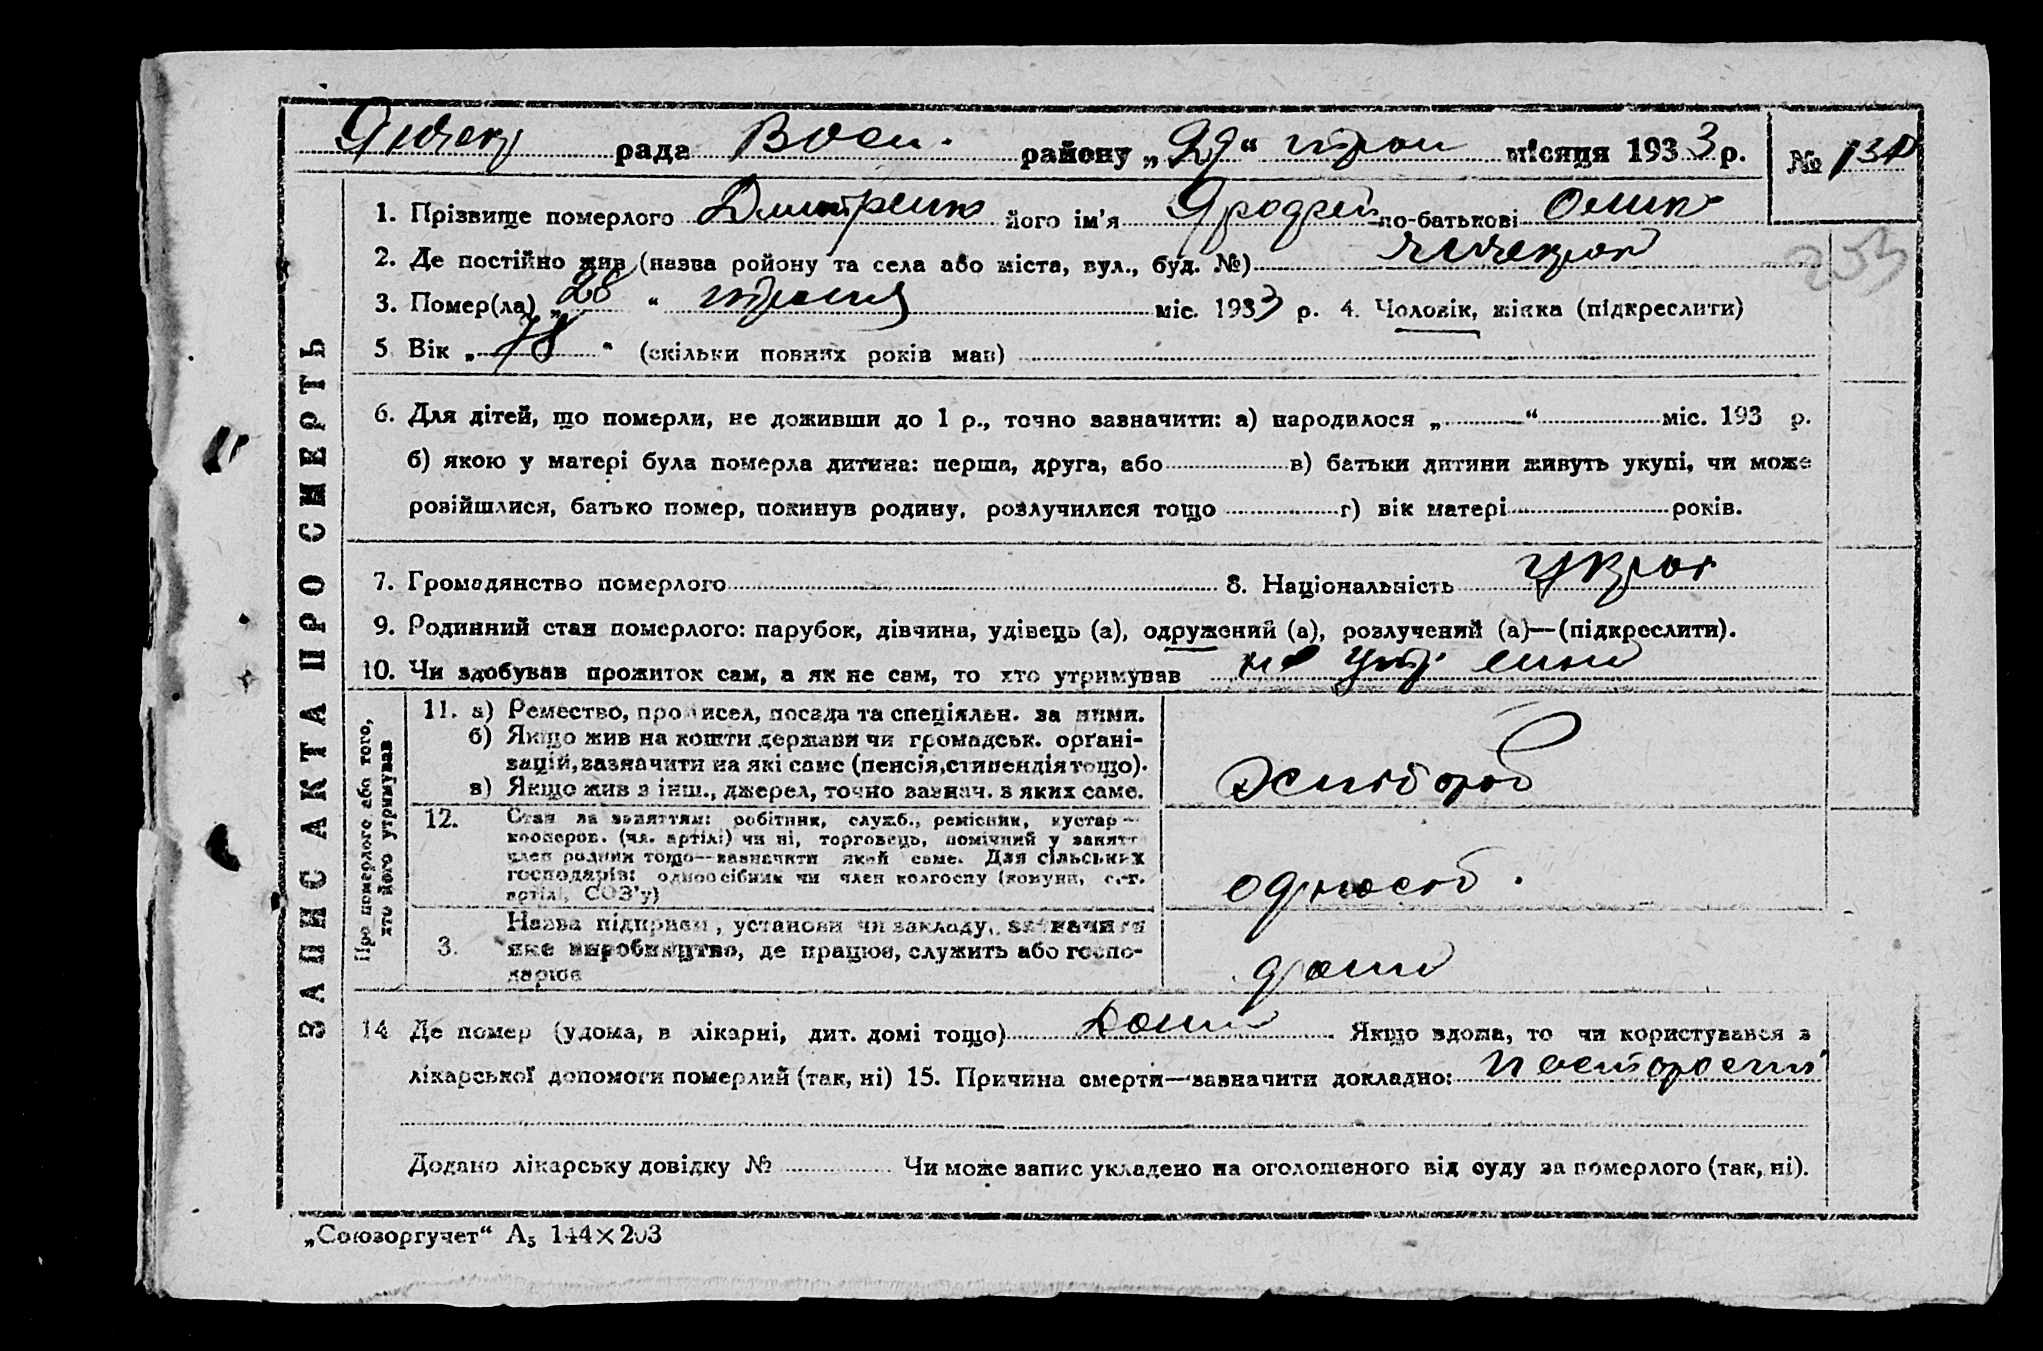 рада Васи. району „29“ травн місяця 1933 р. №
1. Прізвище померлого Дмитренко його ім'я по-батькові
2. Де постійно жив (назва ройону та села або міста, вул., буд. №)
3. Помер(ла) „28“ травня міс. 1933 р. 4. Чоловік, жінка (підкреслити)
5 Вік „78“ (скільки повних років мав)
6. Для дітей, що померли, не доживши до 1 р., точно зазначити: а) народилося „ “ міс. 193 р.
б) якою у матері була померла дитина: перша, друга, або в) батьки дитини живуть укупі, чи може
розійшлися, батько помер, покинув родину, розлучилися тощо г) вік матері років.
7. Громадянство померлого 8. Національність украї
9. Родинний стан померлого: парубок, дівчина, удівець (а), одружений (а), розлучений (а)—(підкреслити).
10. Чи здобував прожиток сам, а як не сам, то хто утримував
Про померлого або того, хто його утримував
11. а) Ремество, промисел, посада та спеціяльн. за ними.
б) Якщо жив на кошти держави чи громадськ. органі-
зацій, зазначити на які саме (пенсія, стипендія тощо).
в) Якщо жив з інш., джерел, точно зазнач. з яких саме.
хлібороб
12. Стан за заняттям: робітник, служб., ремісник, кустар—
кооперов. (чл. артілі) чи ні, торговець, помічний у занятт
член родини тощо—зазначити який саме. Для сільських
господарів: одноосібник чи член колгоспу (комуни, с.-г.
артілі, СОЗ'у)
одноосіб.
3. Назва підприєм, установи чи закладу, зазначити
яке виробництво, де працює, служить або госпо-
дарює
дома
14 Де помер (удома, в лікарні, дит. домі тощо) Дома Якщо вдома, то чи користувався з
лікарської допомоги померлий (так, ні) 15. Причина смерти—зазначити докладно: по старости
Додано лікарську довідку № Чи може запис укладено на оголошеного від суду за померлого (так, ні).
ЗАПИС АКТА ПРО СМЕРТЬ
„Союзоргучет“ А₅ 144×203